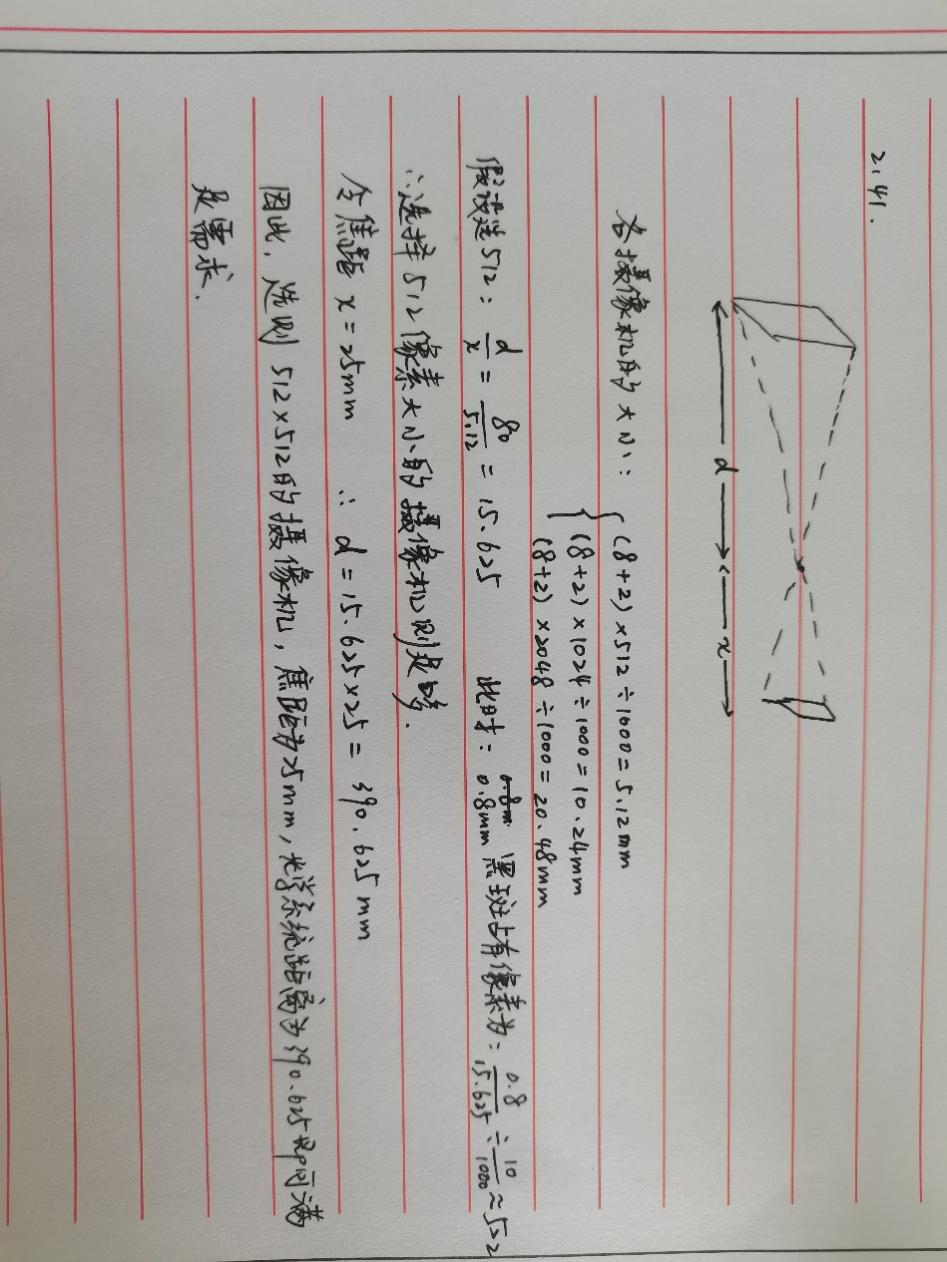 2.41.
d
x
各摄像机的大小: (8+2)×512÷1000=5.12mm
(8+2)×1024÷1000=10.24mm
(8+2)×2048÷1000=20.48mm
假设选512: d/x = 80/5.12 = 15.625 此时: 0.8mm 黑斑占有像素为: 0.8/15.625 ÷ 10/1000 ≈ 5>2
∴选择512像素大小的摄像机则足够.
令焦距 x=25mm ∴ d=15.625×25=390.625mm
因此, 选则 512×512的摄像机, 焦距为25mm, 光学系统距离为390.625即可满
足需求.